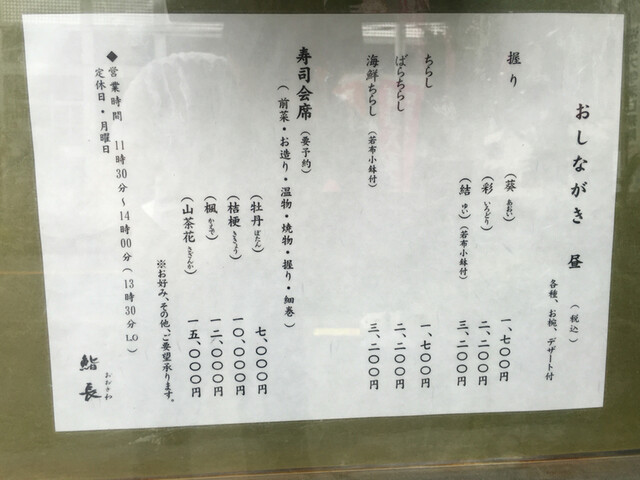 おしながき 昼 (税込)
各種、お椀、デザート付
握り
(葵 あおい) 一、七〇〇円
(彩 いろどり) 二、二〇〇円
(結 ゆい) (若布小鉢付) 三、二〇〇円
ちらし 一、七〇〇円
ばらちらし 二、二〇〇円
海鮮ちらし (若布小鉢付) 三、二〇〇円
寿司会席 (要予約)
(前菜・お造り・温物・焼物・握り・細巻)
(牡丹 ぼたん) 七、〇〇〇円
(桔梗 ききょう) 一〇、〇〇〇円
(楓 かえで) 一二、〇〇〇円
(山茶花 さざんか) 一五、〇〇〇円
※お好み、その他、ご要望承ります。
◆営業時間 11時30分~14時00分(13時30分LO)
定休日・月曜日
鮨 長
おおさわ